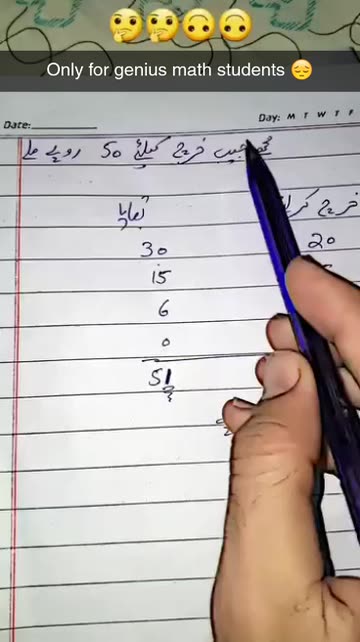 🤔🤔🙃🙃
Only for genius math students 😔
Day: M T W T F
Date:
جیب خرچ کیلئے 50 روپے ملے
خرچ بقایا
20 30
15
6
0
51